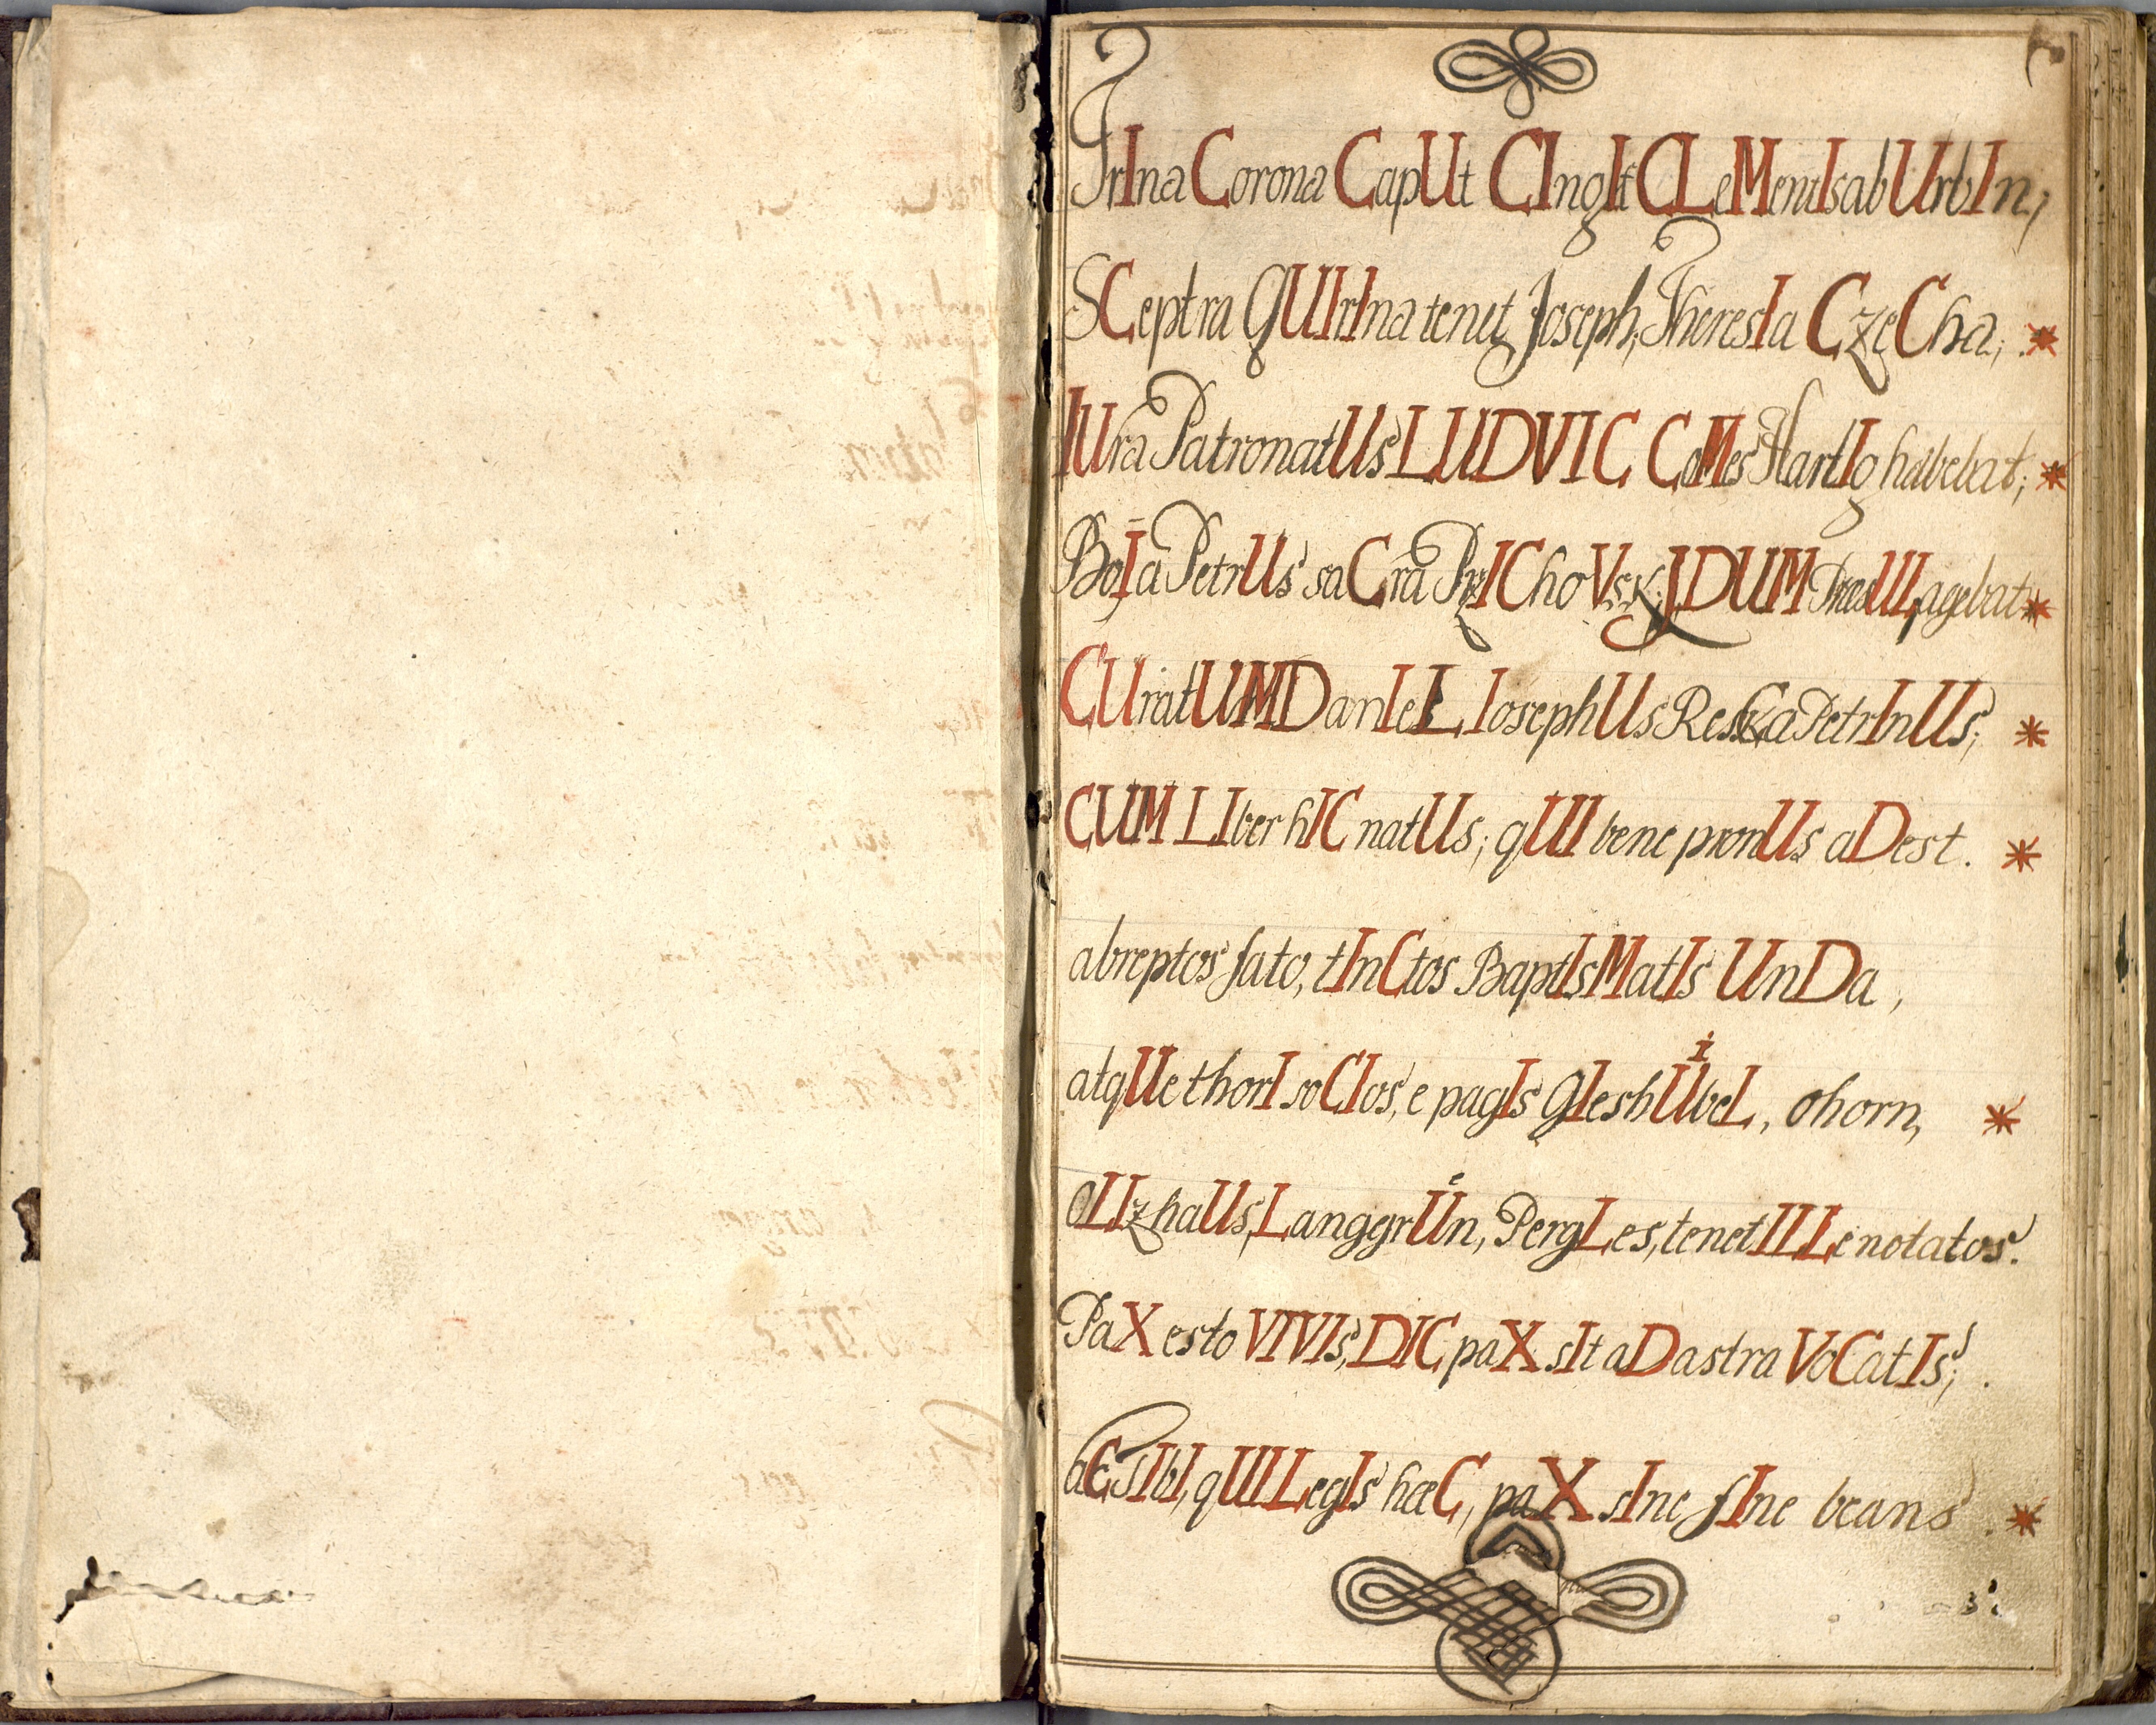 TrIna Corona CapUt CIngIt CLeMentIs ab UrbIn;
SCeptra QUIrIna tenet Joseph; TheresIa CzeCha; *
IUra PatronatUs LUDVIC CoMes HartIg habebat; *
BoIa PetrUs saCra PrzIChoVskJ DUM PræsUL agebat *
CUratUM DanIeL IosephUs ReszCa PetrInUs; *
CUM LIber hIC natUs; qUI bene pronUs aDest. *
abreptos fato, tInCtos BaptIsMatIs UnDa,
atqUe thorI soCIos, e pagIs GIeshÜbeL, ohorn, *
OLIzhaUs, LanggrÜn, PergLes, tenet ILLe notatos.
PaX esto VIVIs, DIC paX sIt aD astra VoCatIs;
aC sIbI, qUI LegIs hæC, paX sIne fIne beans. *